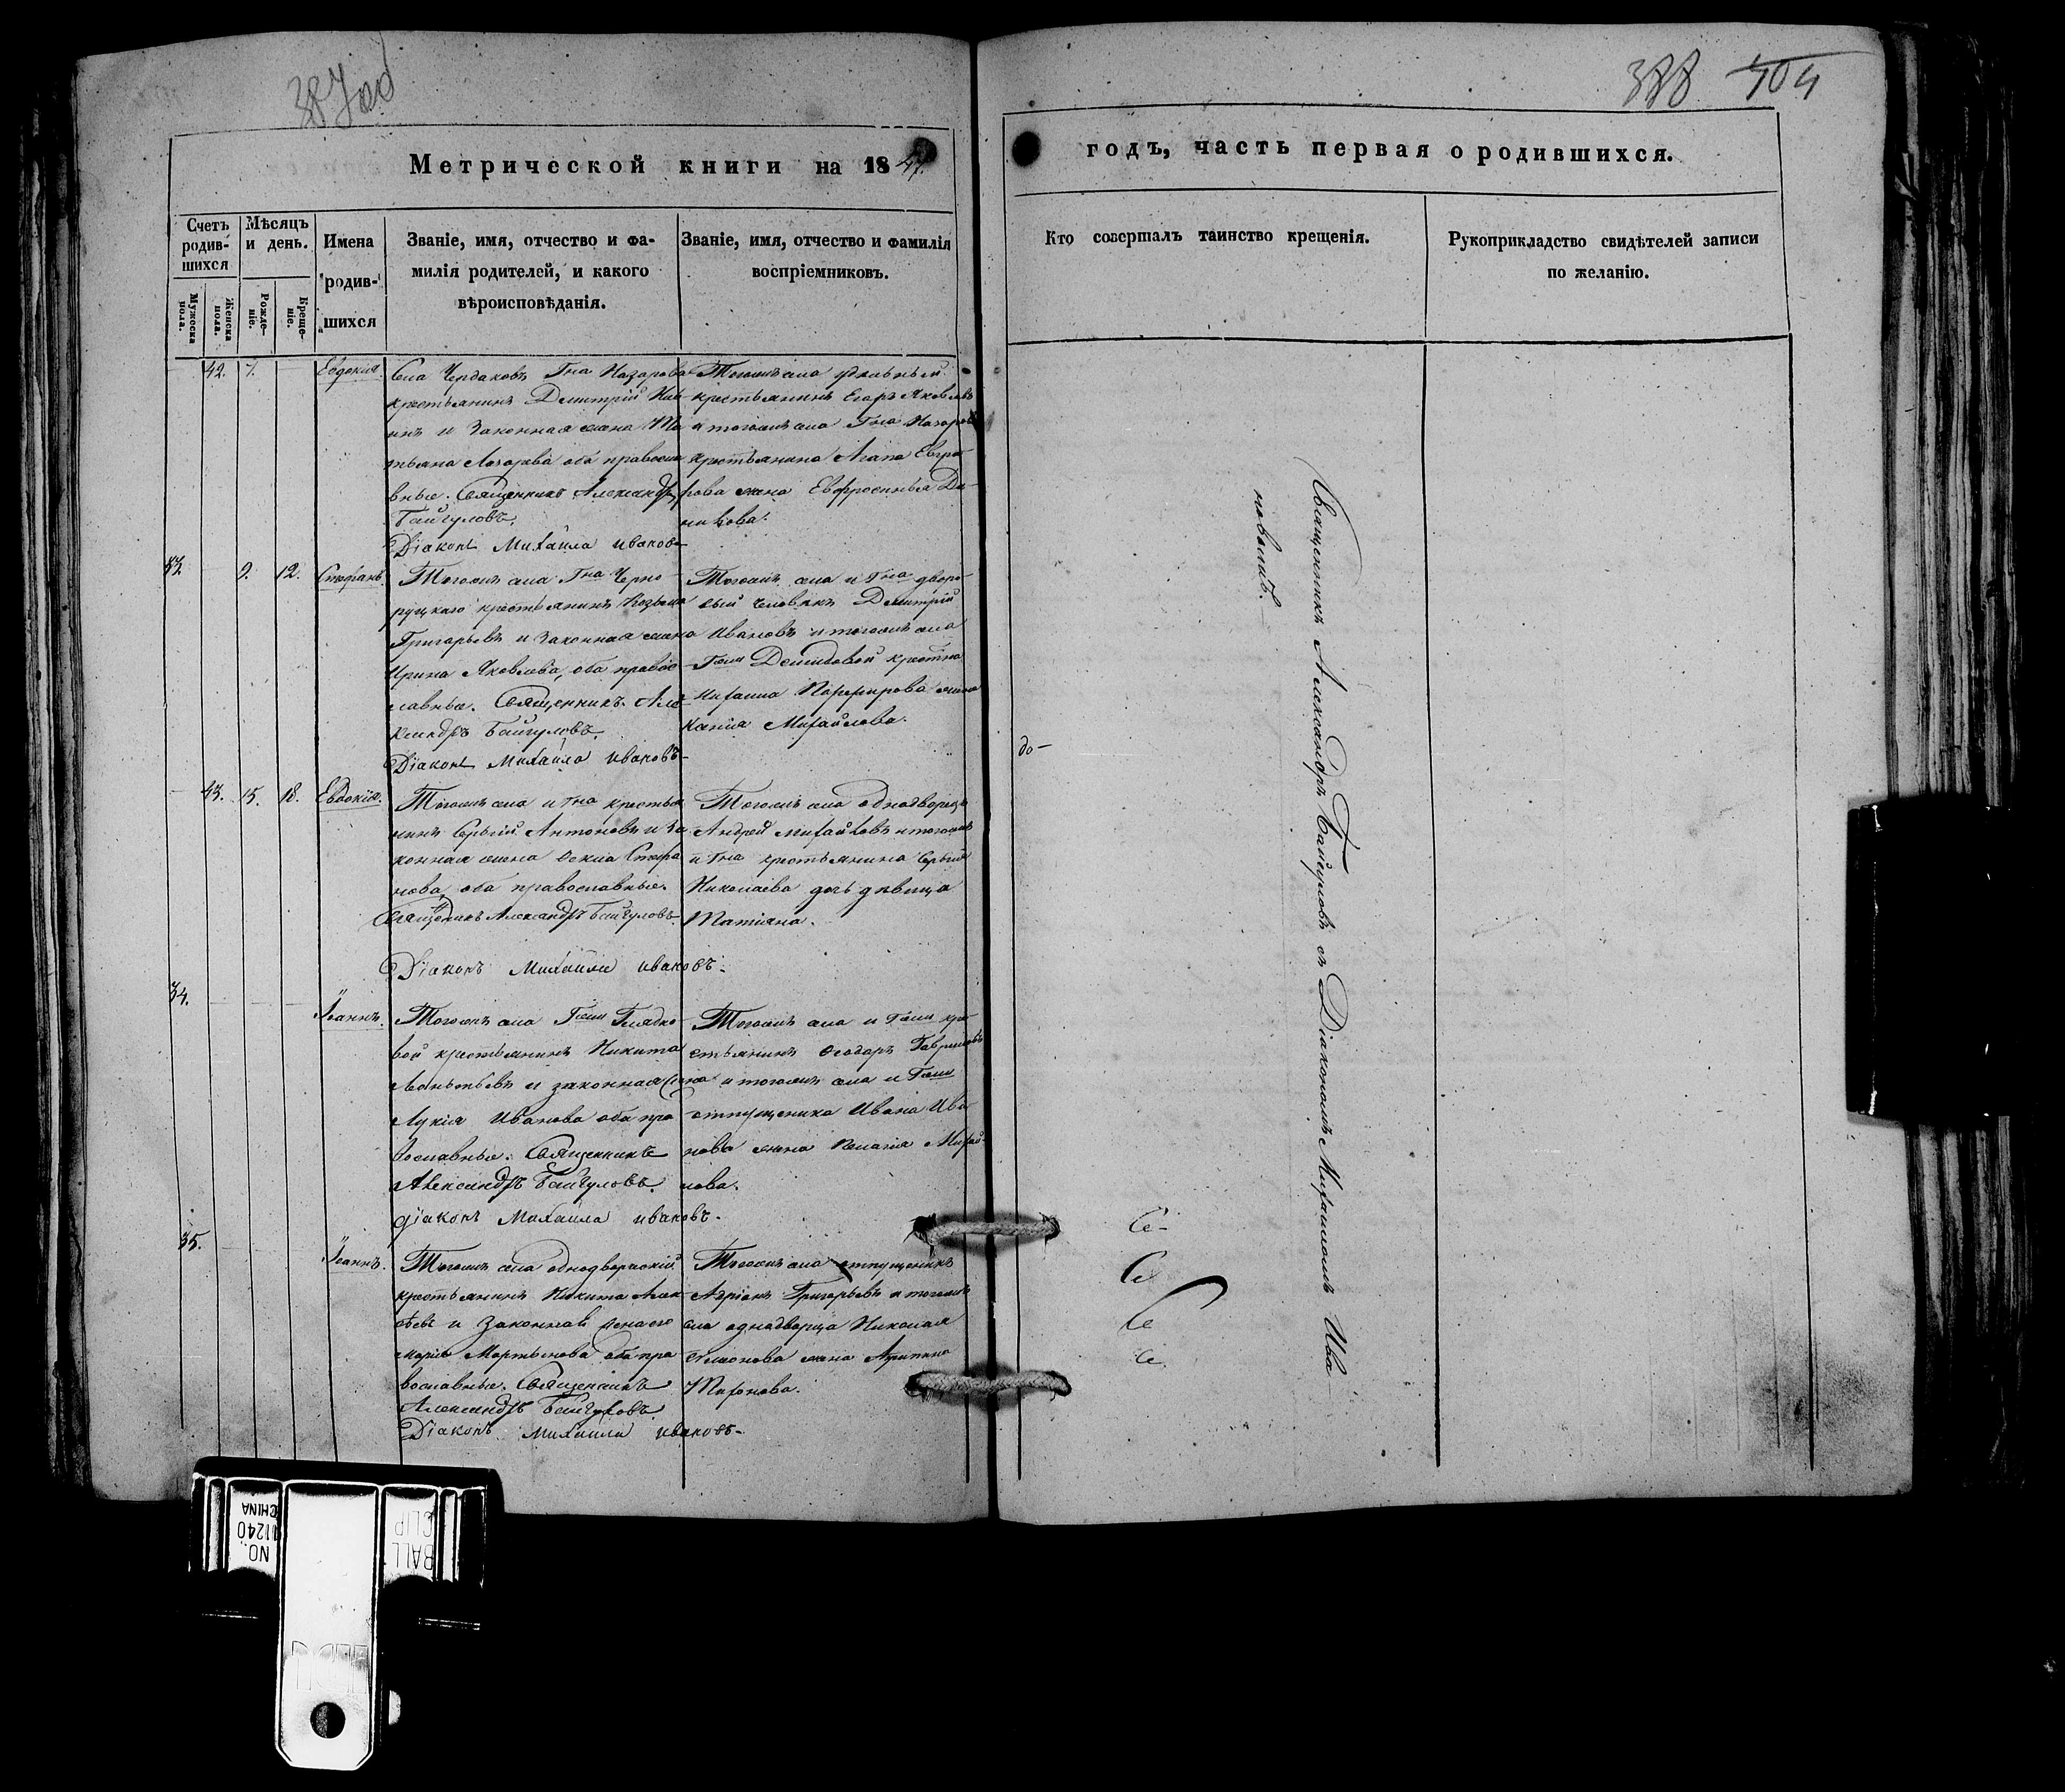 388 404
Метрической книги на 1847.
годъ, часть первая о родившихся.
Счетъ родив-шихся
Мужеска пола.
Женска пола.
Мѣсяцъ и день.
Рожде-ніе.
Креще-ніе.
Имена родив-шихся
Званіе, имя, отчество и фа-
милія родителей, и какого
вѣроисповѣданія.
Званіе, имя, отчество и фамилія
воспріемниковъ.
Кто совершалъ таинство крещенія.
Рукоприкладство свидѣтелей записи
по желанію.
42. 7. Евдокія
Села Чердаковъ Гна Назарова
крестьянинъ Димитрій
инъ и законная жена Та
тьяна Лазарева оба правосла
вные. Священникъ Александръ
Байгуловъ.
Діаконъ Михаила Ивановъ
Тогожъ села удѣльный
крестьянинъ Егоръ Яковлевъ
и тогожъ села Гна Назарова
крестьянина Агапа Евгра
фова жена Евфросинья Да-
нилова.
33. 9. 12. Стефанъ.
Тогожъ села Гна Черно-
руцкаго крестьянинъ Козьма
Григорьевъ и законная жена
Ирина Яковлева, оба правос
лавные. Священникъ Але
ксандръ Байгуловъ.
Діаконъ Михаила Ивановъ-
Тогожъ села и Гна дворо-
вый человѣкъ Димитрій
Ивановъ и тогожъ села
Гжи Демидовой крестна
Михаила Парфирова жена
Михайлова.
43. 15. 18. Евдокія.
Тогожъ села и Гна крестья
нинъ Сергій Антоновъ и за
конная жена Стефа
нова оба православные.
Священникъ Александръ Байгуловъ.
Діаконъ Михаила Ивановъ.
Тогожъ села однодворецъ
Андрей Михайловъ и тогожъ
и Гна крестьянина Сергія
Николаева дочь дѣвица
Татіана.
34. Іоаннъ.
Тогожъ села Гжи Гладко
вой крестьянинъ Никита
Леонтьевъ и законная жена
Лукія Иванова оба пра
вославные. Священникъ
Александръ Байгуловъ.
діаконъ Михаила Ивановъ.
Тогожъ села и Гжи кре-
стьянинъ Ѳеодоръ Гавриловъ
и тогожъ села и Гжи
отпущеника Ивана Ива
нова жена Пелагія Михай-
лова.
35. Іоаннъ.
Тогожъ села однодворческій
крестьянинъ Никита Алек
сѣевъ и законная жена его
Марія Мартынова оба пра
вославные. Священникъ
Александръ Байгуловъ.
Діаконъ Михаила Ивановъ-
Тогожъ села отпущеникъ
Адріанъ Григорьевъ и тогожъ
села однодворца Николая
Семионова жена Агрипина
Тихонова.
Священникъ Александръ Байгуловъ съ Діакономъ Михаиломъ Ива
новымъ.
до-